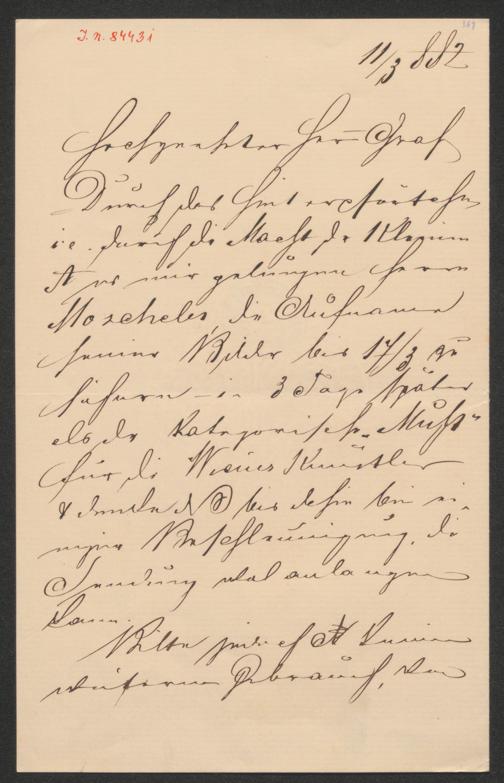 I. N. 84431
169
11/3 882
Hochgeehrter Herr Graf
Durch das Hinterpförtchen
i. e. durch die Macht der Kleinen
ist es mir gelungen Herrn
Moscheles die Aufname
seiner Bilder bis 17/3 zu
sichern – i. e. 3 Tage später
als der kategorische „Muß“
für die Wiener Künstler
& denke daß bis dahin bei ei-
niger Beschleunigung, die
Sendung wol anlangen
kann.
Bitte jedoch keinen
weiteren Gebrauch, von